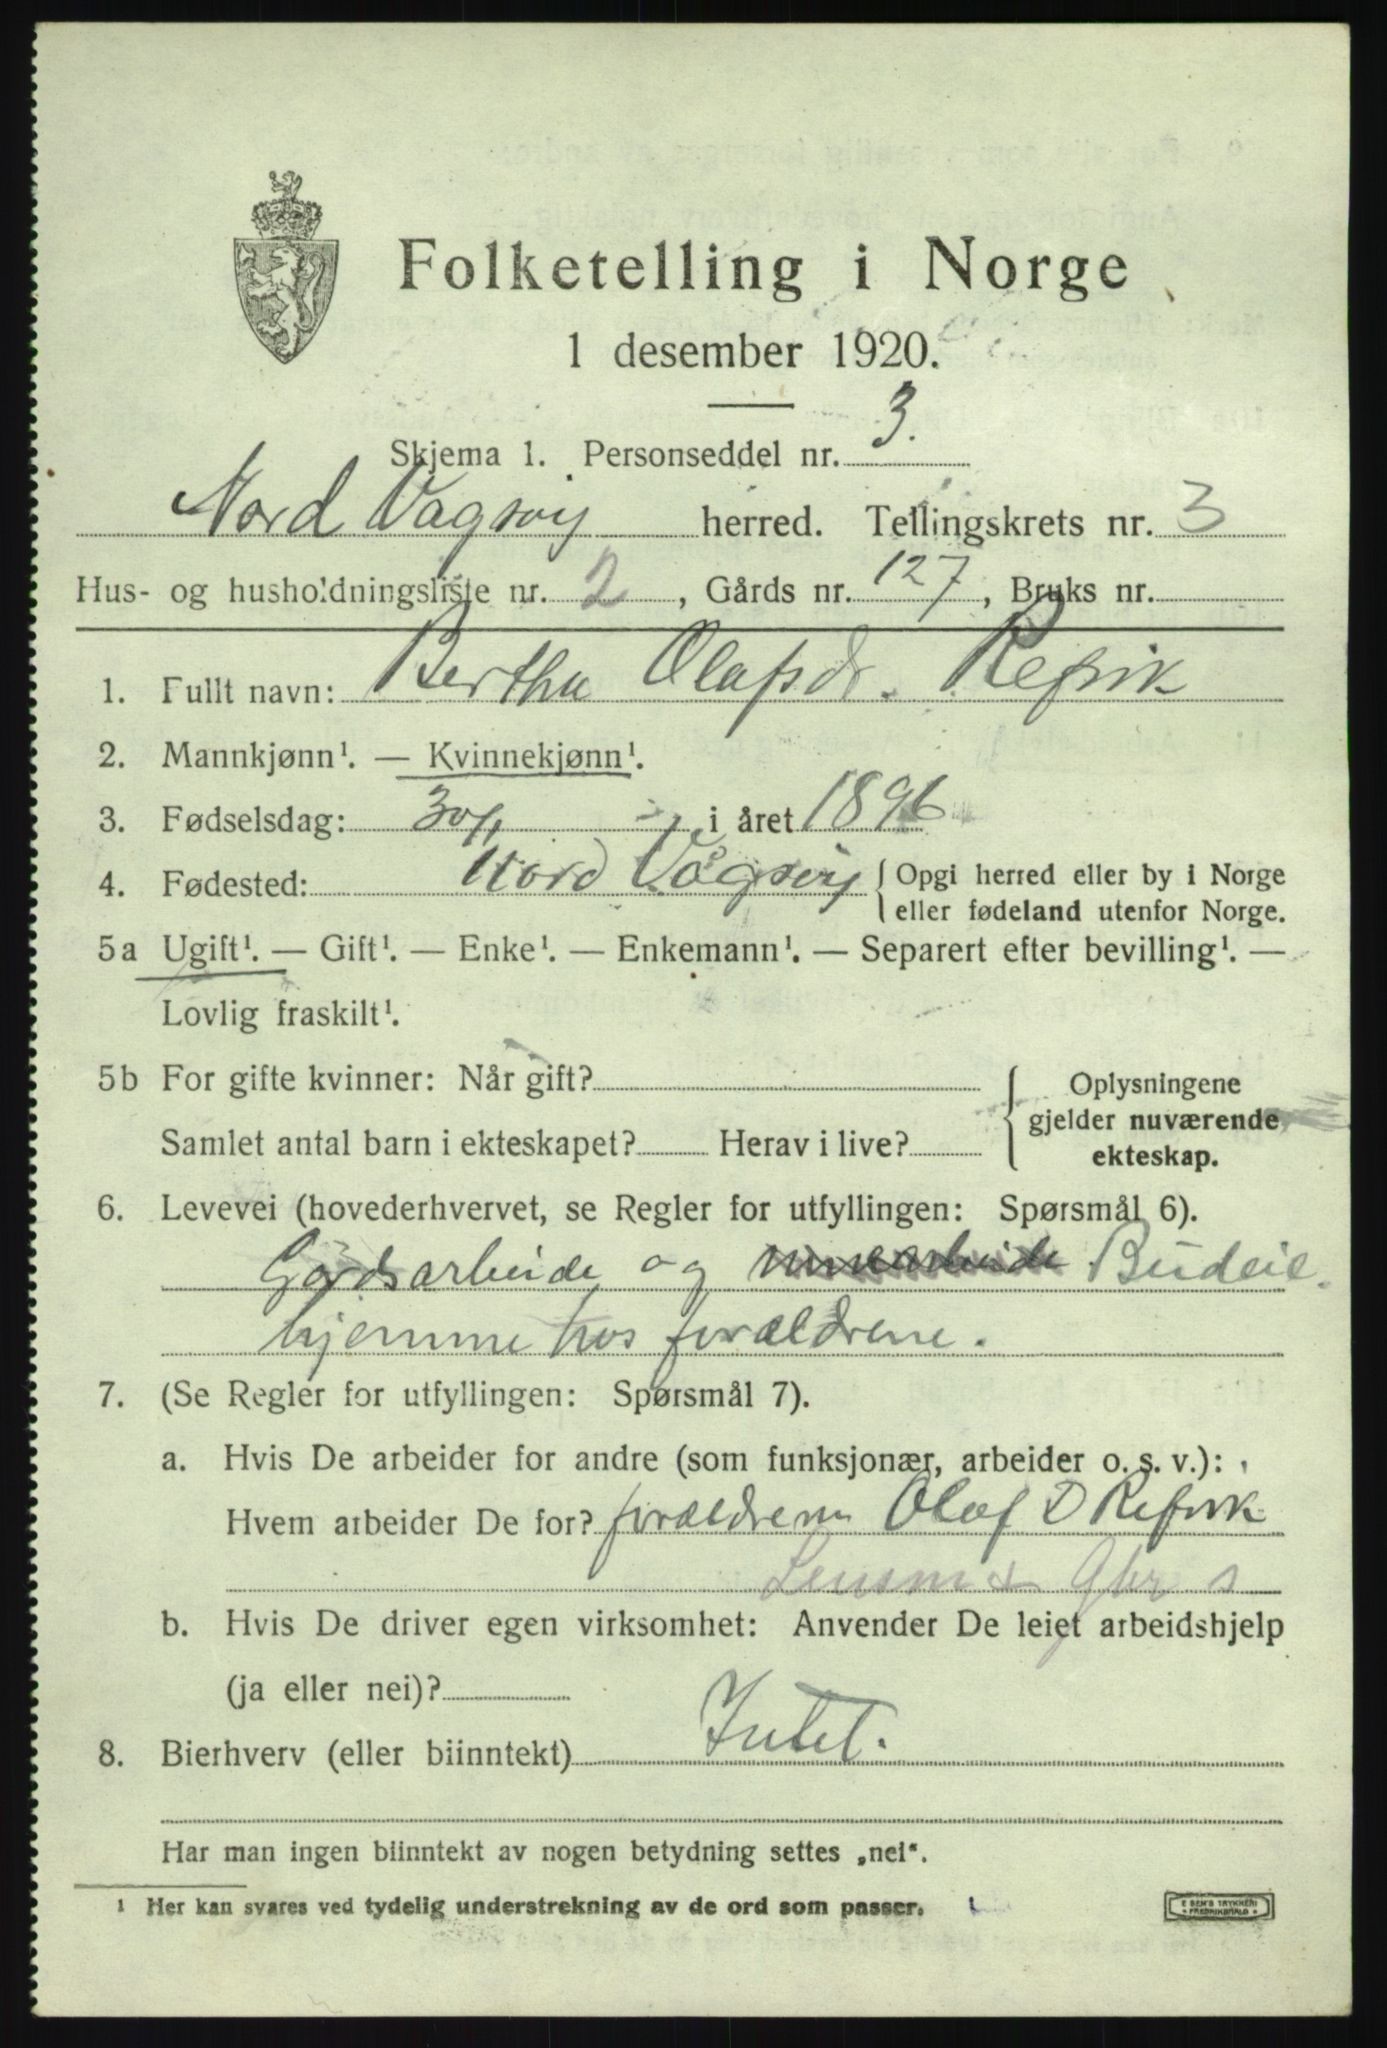 Folketelling i Norge
1 desember 1920.
Skjema 1. Personseddel nr. 3.
Nord Vagsøy herred. Tellingskrets nr. 3
Hus- og husholdningsliste nr. 2, Gårds nr. 127, Bruks nr.
1. Fullt navn: Bertha Olafsdr. Refvik
2. Mannkjønn¹. — Kvinnekjønn¹.
3. Fødselsdag: 30/1 i året 1896
4. Fødested: Nord Vågsøy { Opgi herred eller by i Norge
eller fødeland utenfor Norge.
5a Ugift¹. — Gift¹. — Enke¹. — Enkemann¹. — Separert efter bevilling¹. —
Lovlig fraskilt¹.
5b For gifte kvinner: Når gift?
Samlet antal barn i ekteskapet? Herav i live?
{ Oplysningene
gjelder nuværende
ekteskap.
6. Levevei (hovederhvervet, se Regler for utfyllingen: Spørsmål 6).
Gårdsarbeide og Budeie
hjemme hos forældrene.
7. (Se Regler for utfyllingen: Spørsmål 7).
a. Hvis De arbeider for andre (som funksjonær, arbeider o. s. v.):
Hvem arbeider De for? forældrene Olaf D Refvik
Lensm & Gbr s
b. Hvis De driver egen virksomhet: Anvender De leiet arbeidshjelp
(ja eller nei)?
8. Bierhverv (eller biinntekt) Intet.
Har man ingen biinntekt av nogen betydning settes „nei“.
¹ Her kan svares ved tydelig understrekning av de ord som passer.